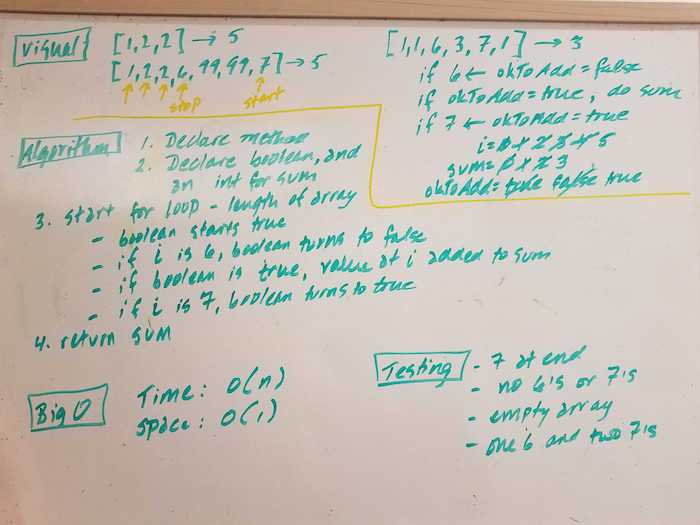 Visual
[1,2,2] → 5
[1,2,2,6,99,99,7] → 5
stop
start
[1,1,6,3,7,1] → 3
if 6 ← okToAdd = false
if okToAdd = true, do sum
if 7 ← okToAdd = true
i = 0 1 2 3 4 5
sum = 0 1 2 3
okToAdd = true false true
Algorithm
1. Declare method
2. Declare boolean, and
an int for sum
3. start for loop - length of array
- boolean starts true
- if i is 6, boolean turns to false
- if boolean is true, value at i added to sum
- if i is 7, boolean turns to true
4. return sum
Big O
Time: O(n)
Space: O(1)
Testing
- 7 at end
- no 6's or 7's
- empty array
- one 6 and two 7's